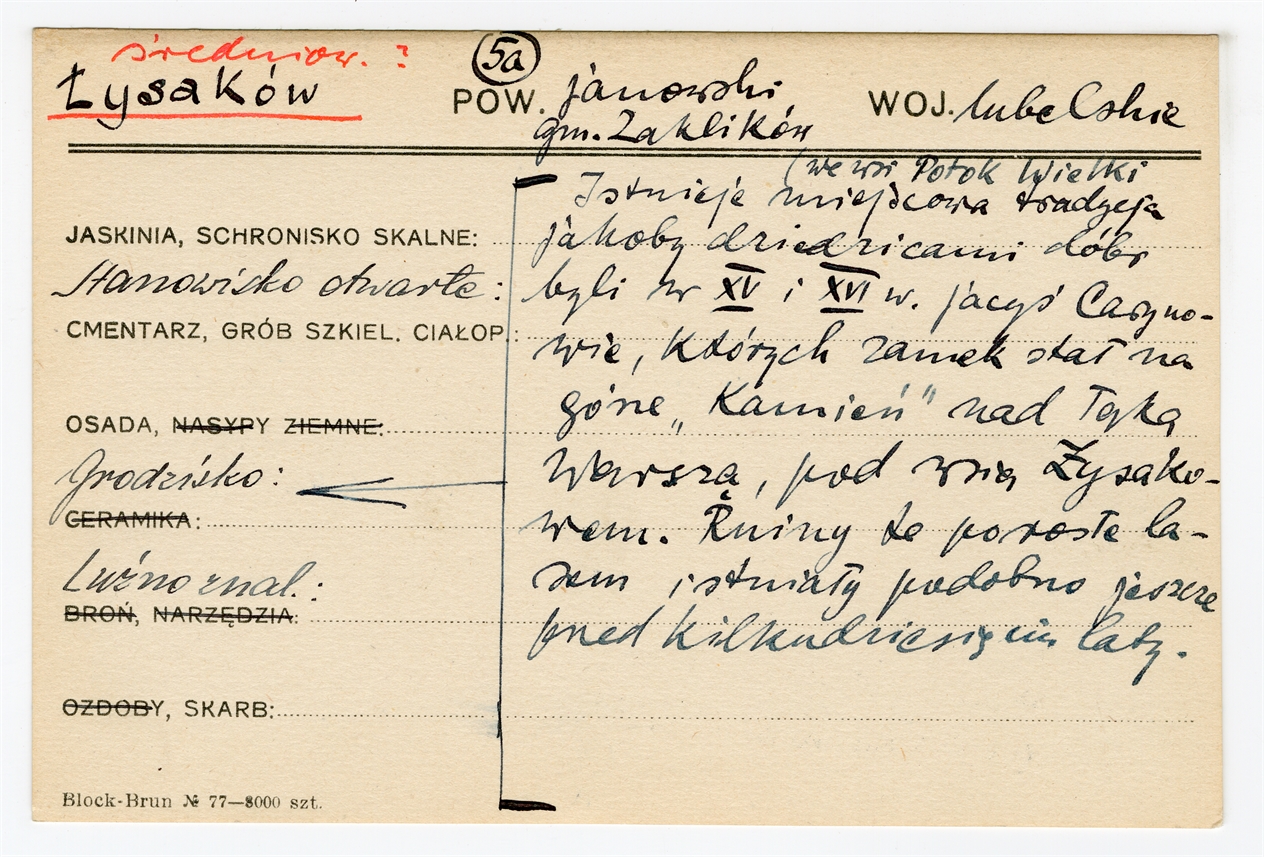 średniow. ?
5a
Łysaków POW. janowski WOJ. lubelskie
gm. Zaklików
(we wsi Potok Wielki
Istnieje miejscowa tradycja
JASKINIA, SCHRONISKO SKALNE:
jakoby dziedzicami dóbr
Stanowisko otwarte:
byli w XV i XVI w. jacyś Caryno-
CMENTARZ, GRÓB SZKIEL. CIAŁOP.:
wie, których zamek stał na
górze „Kamień" nad łąką
OSADA, NASYPY ZIEMNE:
Warszą, pod wsią Łysako-
Grodzisko:
CERAMIKA:
wem. Ruiny te porosłe la-
Luźno znal.:
sem istniały podobno jeszcze
BROŃ, NARZĘDZIA:
przed kilkudziesięciu laty.
OZDOBY, SKARB:
Block-Brun № 77—8000 szt.